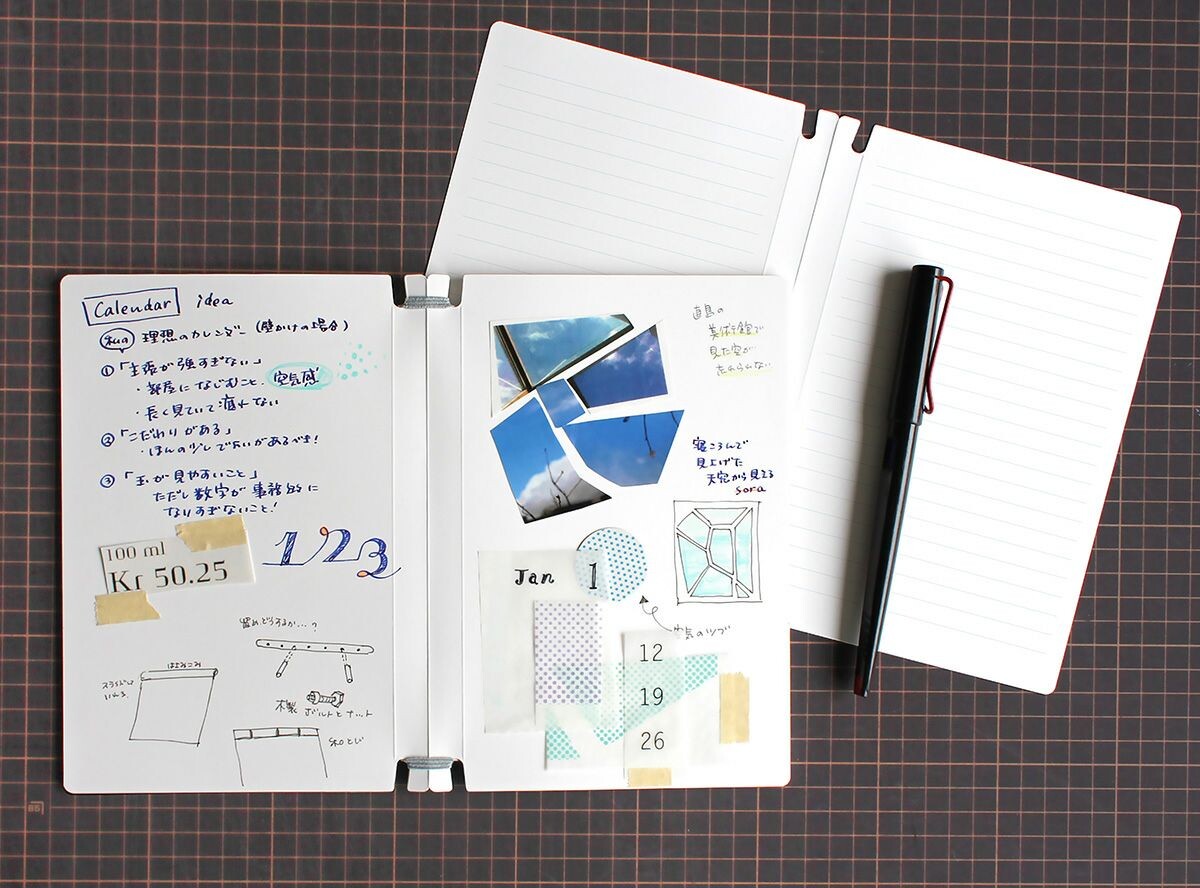 Calendar idea
理想のカレンダー (壁かけの場合)
①「主張が強すぎない」
・部屋になじむこと. 空気感
・長く見ていて疲れない
②「こだわりがある」
・ほんの少しでいいがあるべき!
③「玉が見やすいこと」
ただし数字が事務的に
なりすぎないこと!
100 ml
Kr 50.25
123
留め、どうするか…?
はさみこみ
スライドして
いれる
木製 ボルトとナット
和とじ
直島の
美術館で
見た空が
忘れられない
寝ころんで
見上げた
天窓から見える
sora
Jan 1
空気のツブ
12
19
26
B5